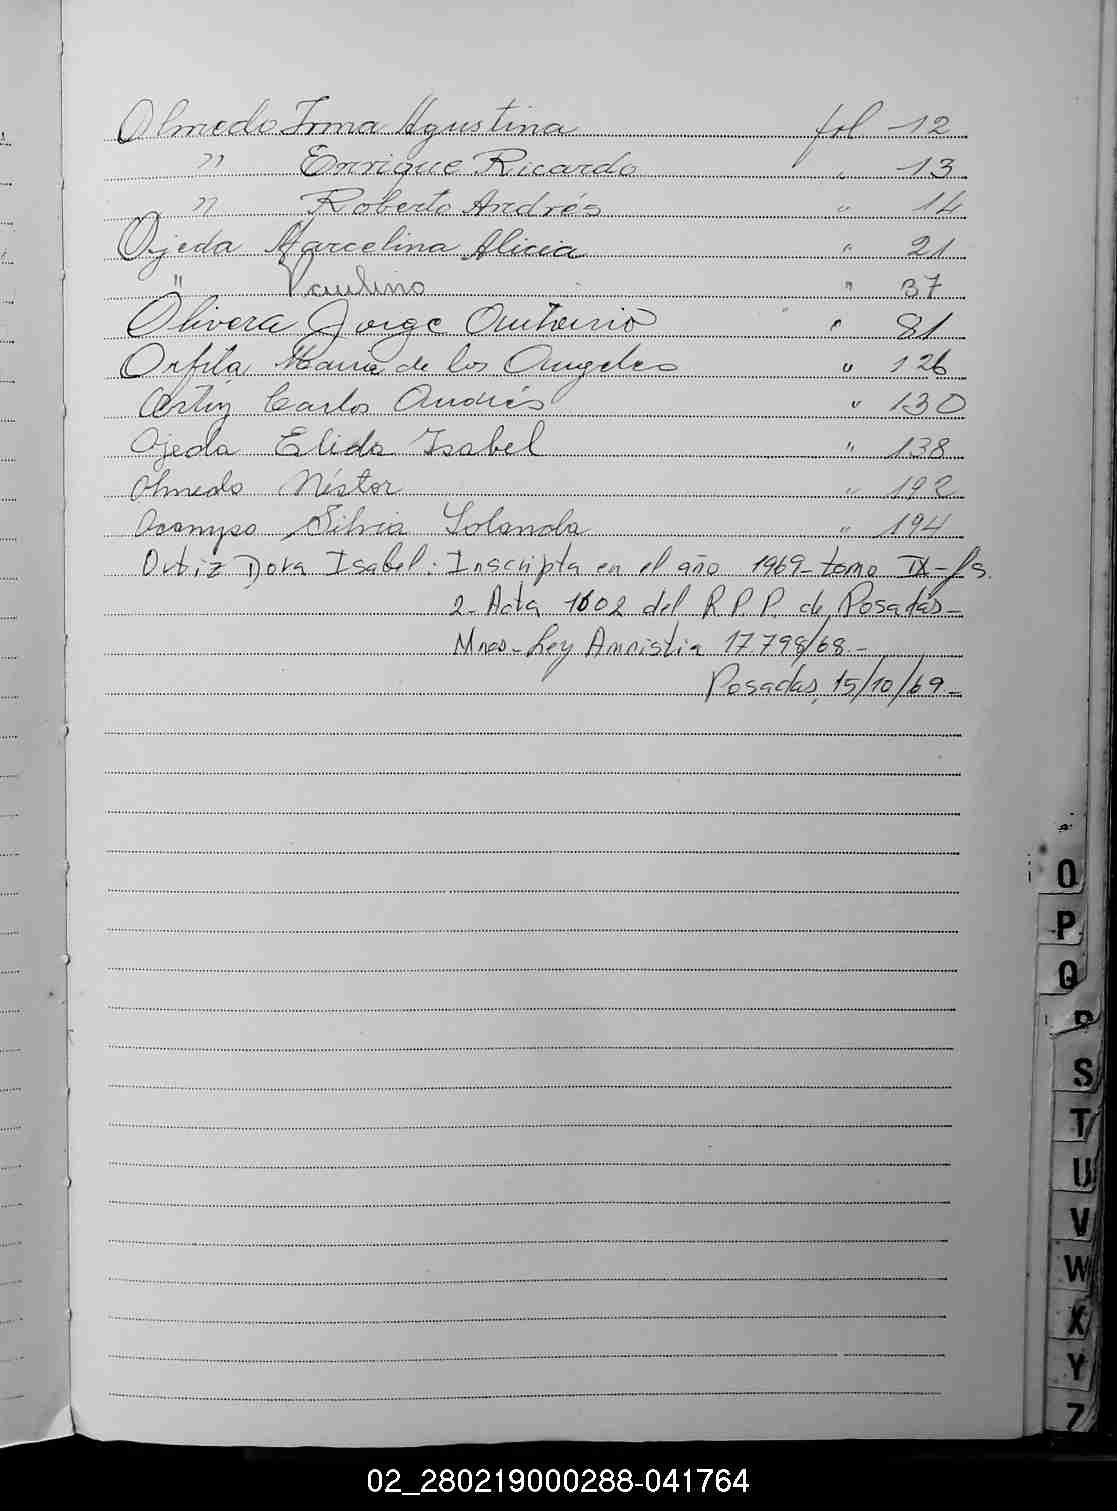 Olmedo Irma Agustina fol 12
" Enrique Ricardo " 13
" Roberto Andrés " 14
Ojeda Marcelina Alicia " 21
" Paulino " 37
Olivera Jorge Antonio " 81
Orfila Maria de los Angeles " 126
Ortiz Carlos Andrés " 130
Ojeda Elida Isabel " 138
Olmedo Néstor " 192
Silvia Iolanda " 194
Ortiz Dora Isabel: Inscripta en el año 1969-tomo IX-fs.
2-Acta 1602 del R.P.P. de Posadas-
Mnes-Ley Amnistia 17.798/68.-
Posadas, 15/10/69-
O
P
Q
R
S
T
U
V
W
X
Y
Z
02_280219000288-041764